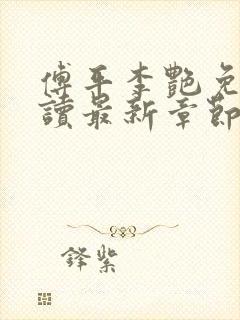 傅平李艷免
讀最新章節
鋒紫